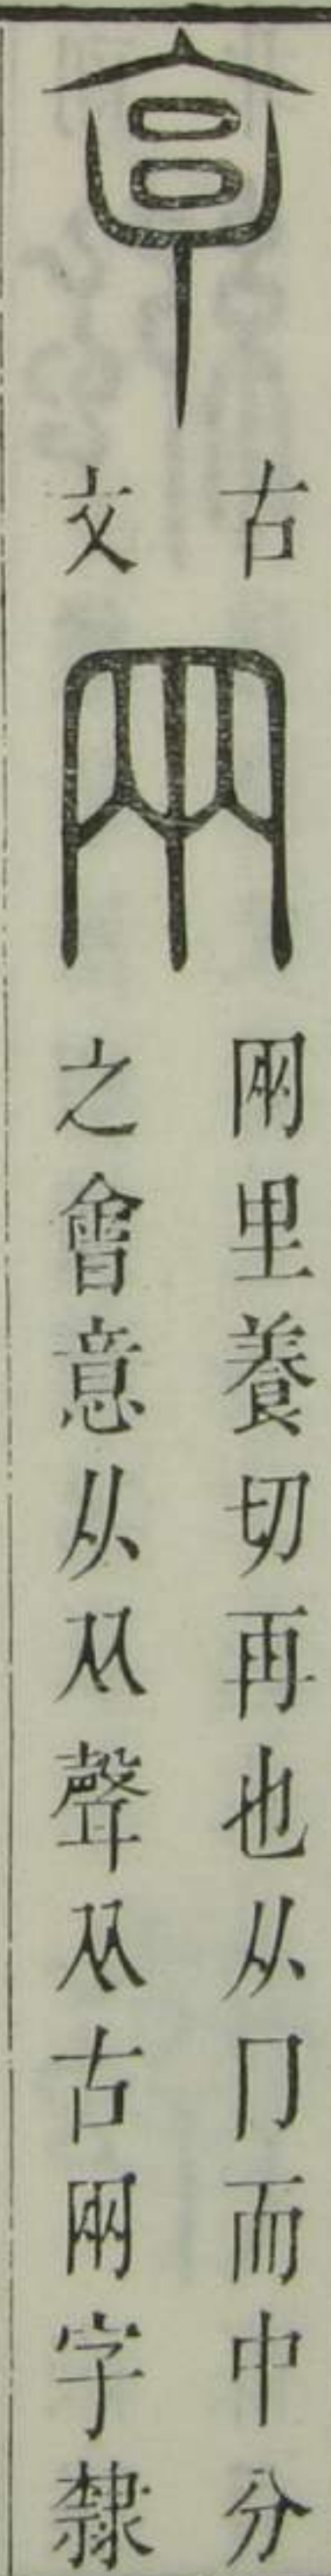 古
文
㒳
㒳里養切再也从冂而中分
之會意从𠓜聲𠓜古㒳字隸